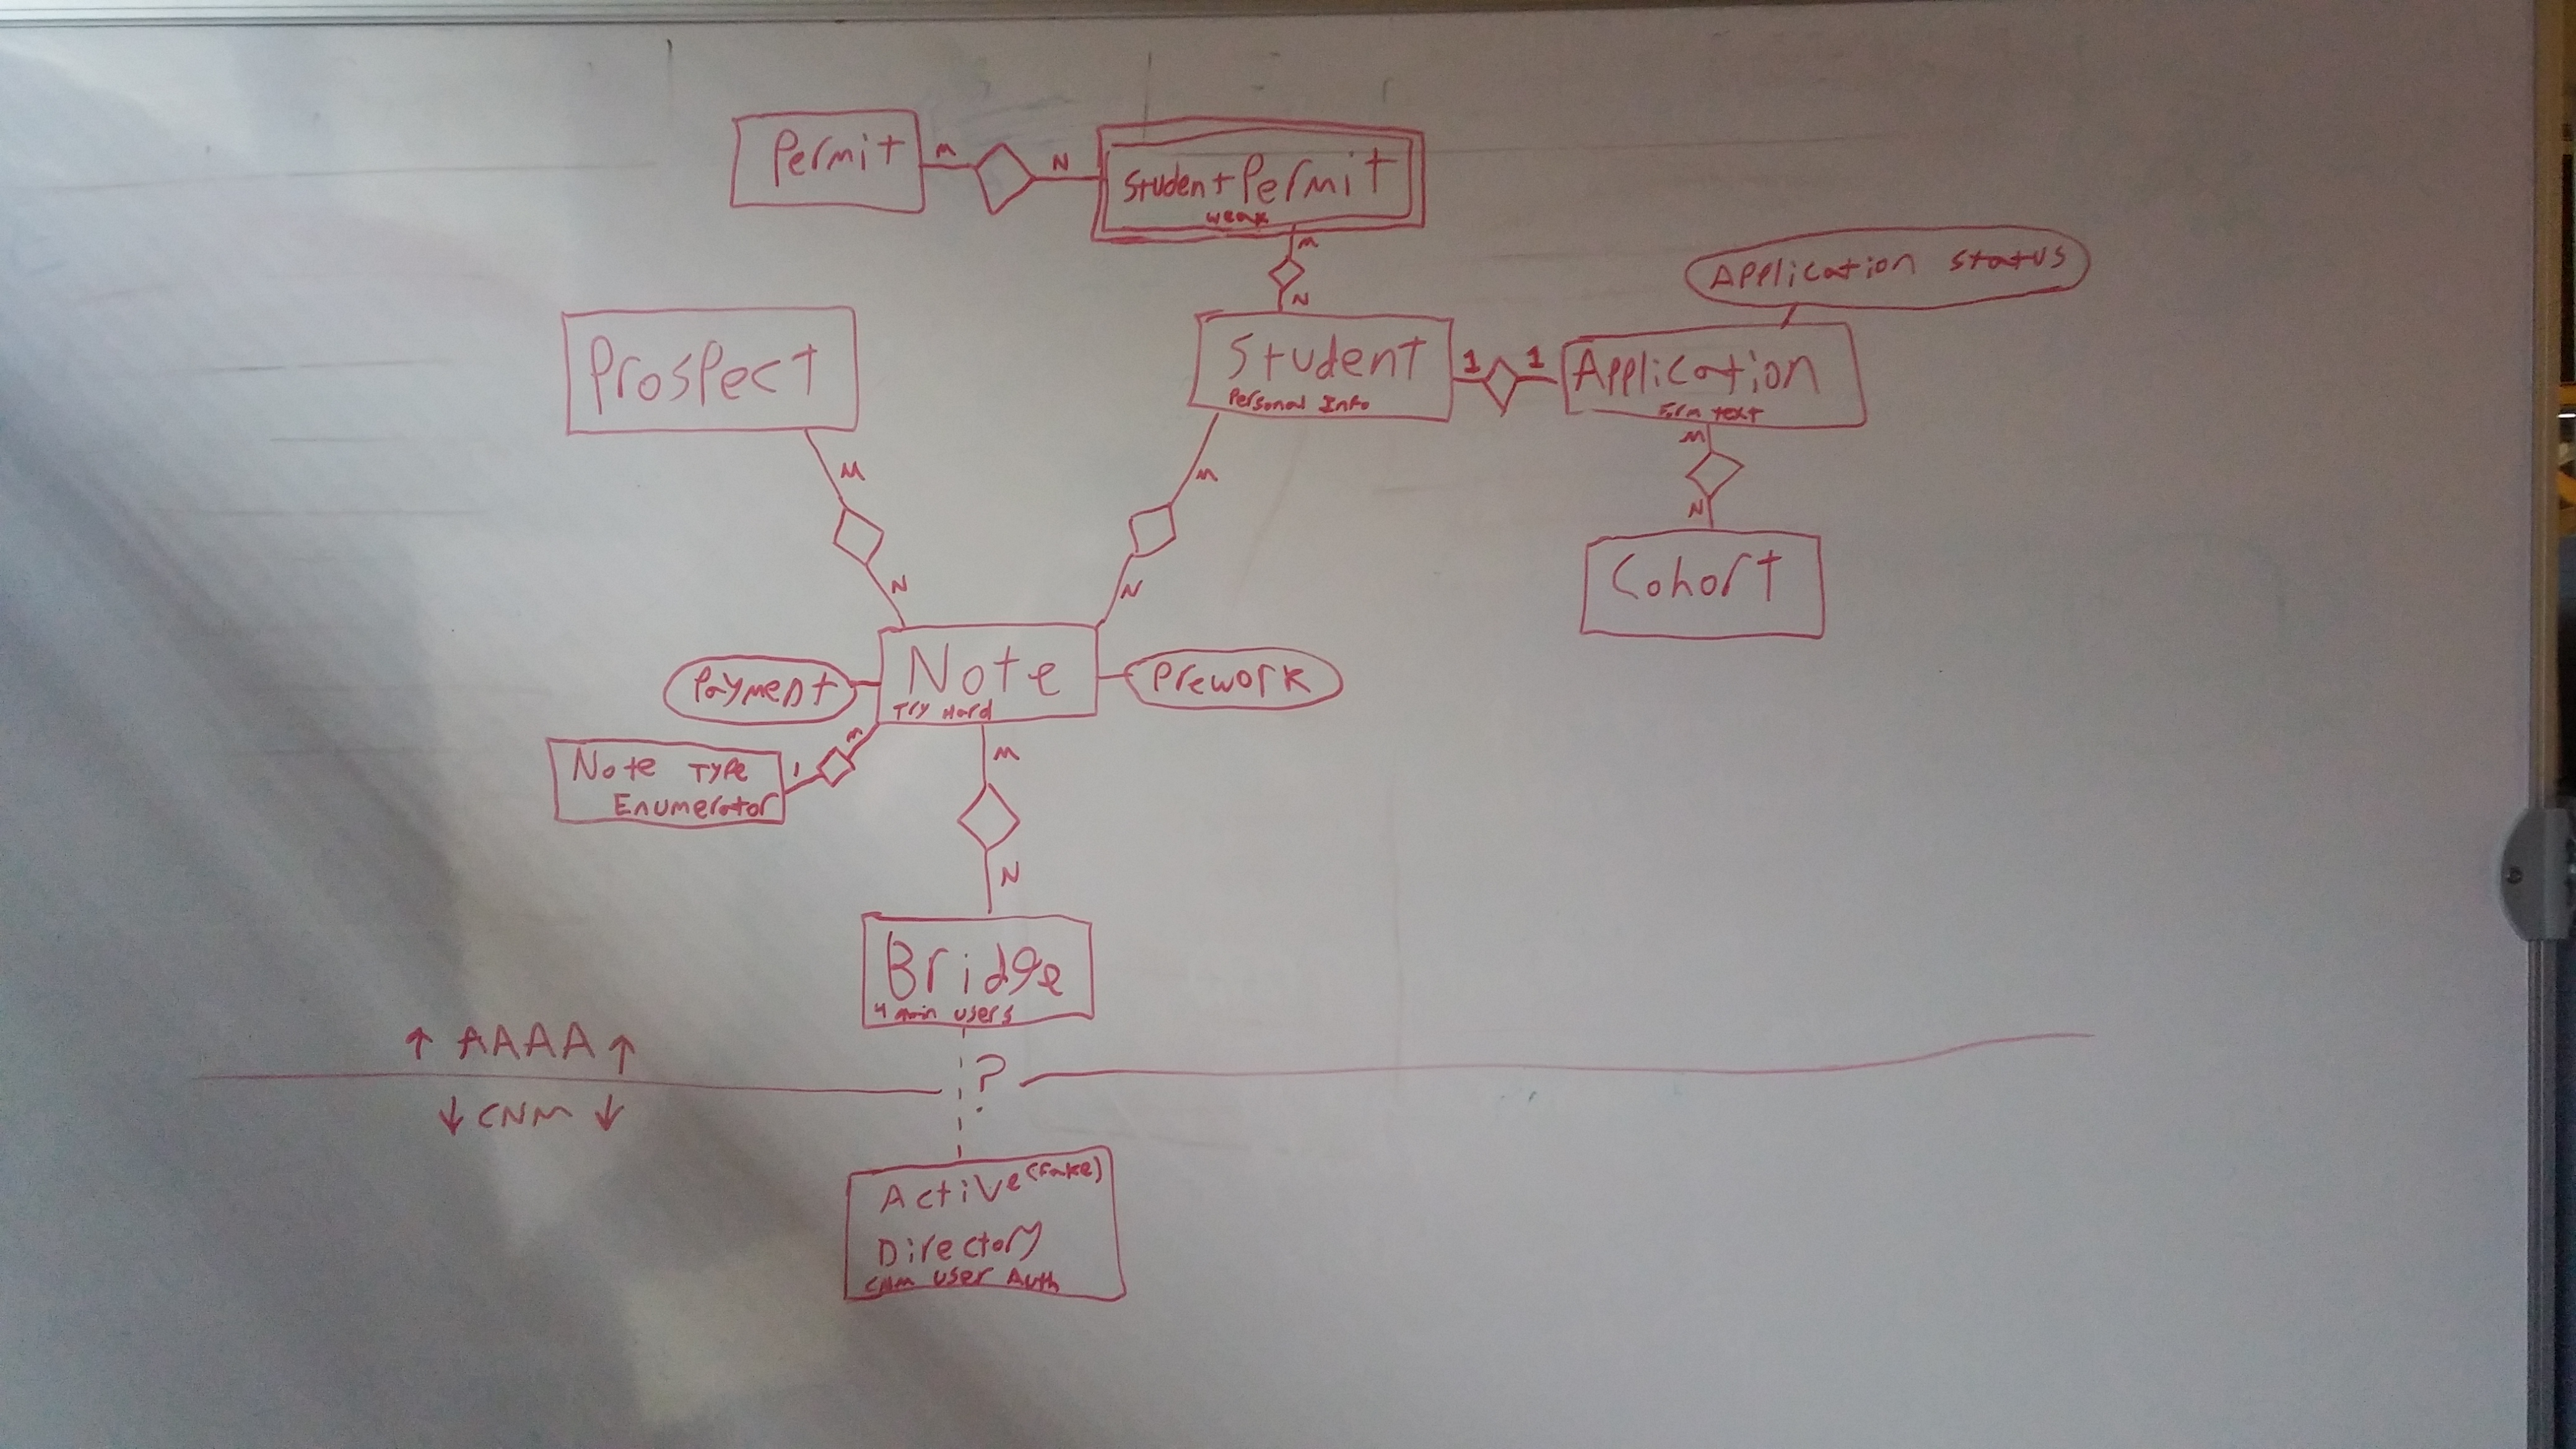 Permit
M
N
StudentPermit
weak
M
N
Application status
Prospect
Student
Personal Info
1
1
Application
Form text
M
N
Cohort
M
N
M
N
Payment
Note
Try Hard
Prework
Note Type
Enumerator
1
M
M
N
Bridge
4 main users
↑ AAAA ↑
?
↓ CNM ↓
Active (Fake)
Directory
CNM User Auth